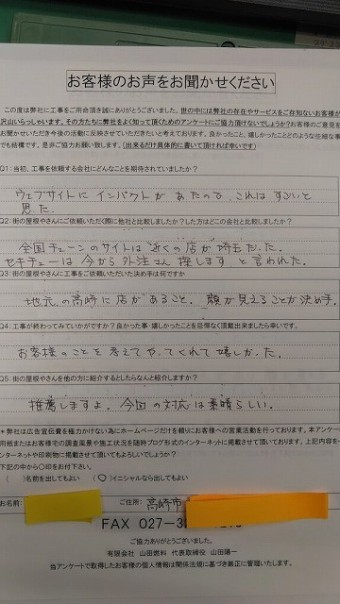 お客様のお声をお聞かせください
この度は弊社に工事をご用命頂き誠にありがとうございました。世の中には弊社の存在やサービスをご存知ないお客様が
沢山いらっしゃいます。その方たちに弊社をよく知って頂くためのアンケートにご協力頂けないでしょうか?お客様のご意見を
お聞かせいただき今後の活動に反映させていただきたいと考えております。良かったこと、嬉しかったことどのような些細な事
でも結構です。是非ご協力お願い致します。(出来るだけ具体的に書いて頂ければ幸いです)
Q1:当初、工事を依頼する会社にどんなことを期待されていましたか?
ウェブサイトにインパクトがあたので、これはすごいと
見た。
Q2:街の屋根やさんにご依頼いただく際に他社と比較しましたか?した方はどこの会社と比較しましたか?
全国チェーンのサイトは近くの店が埼玉だった。
セキチューは今から外注さん探しますと言われた。
Q3:街の屋根やさんに工事をご依頼いただいた決め手は何ですか
地元の高崎に店があること。顔が見えることが決め手。
Q4:工事が終わってみていかがですか?良かった事・嬉しかったことを忌憚なく頂戴出来ましたら幸いです。
お客様のことを考えてやってくれて嬉しかった。
Q5:街の屋根やさんを他の方に紹介するとしたらなんと紹介しますか?
推薦しますよ。今回の対応は素晴らしい。
*弊社は広告宣伝費を極力かけない為にホームページだけを頼りにお客様への営業活動を行っております。本アンケー
用紙またはお客様宅の調査風景や施工状況を随時ブログ形式のインターネットに掲載させて頂いております。上記内容を
ンターネットや印刷物に掲載させて頂いてもよろしいでしょうか?
下記の中から○印をお付下さい。
( )名前を出してもよい (○)イニシャルなら出してもよい
お名前: ご住所: 高崎市
FAX 027-3
ご協力ありがとうございました。
有限会社 山田燃料 代表取締役 山田陽一
当アンケートで取得したお客様の個人情報は関係法規に基づき厳正に管理いたします。